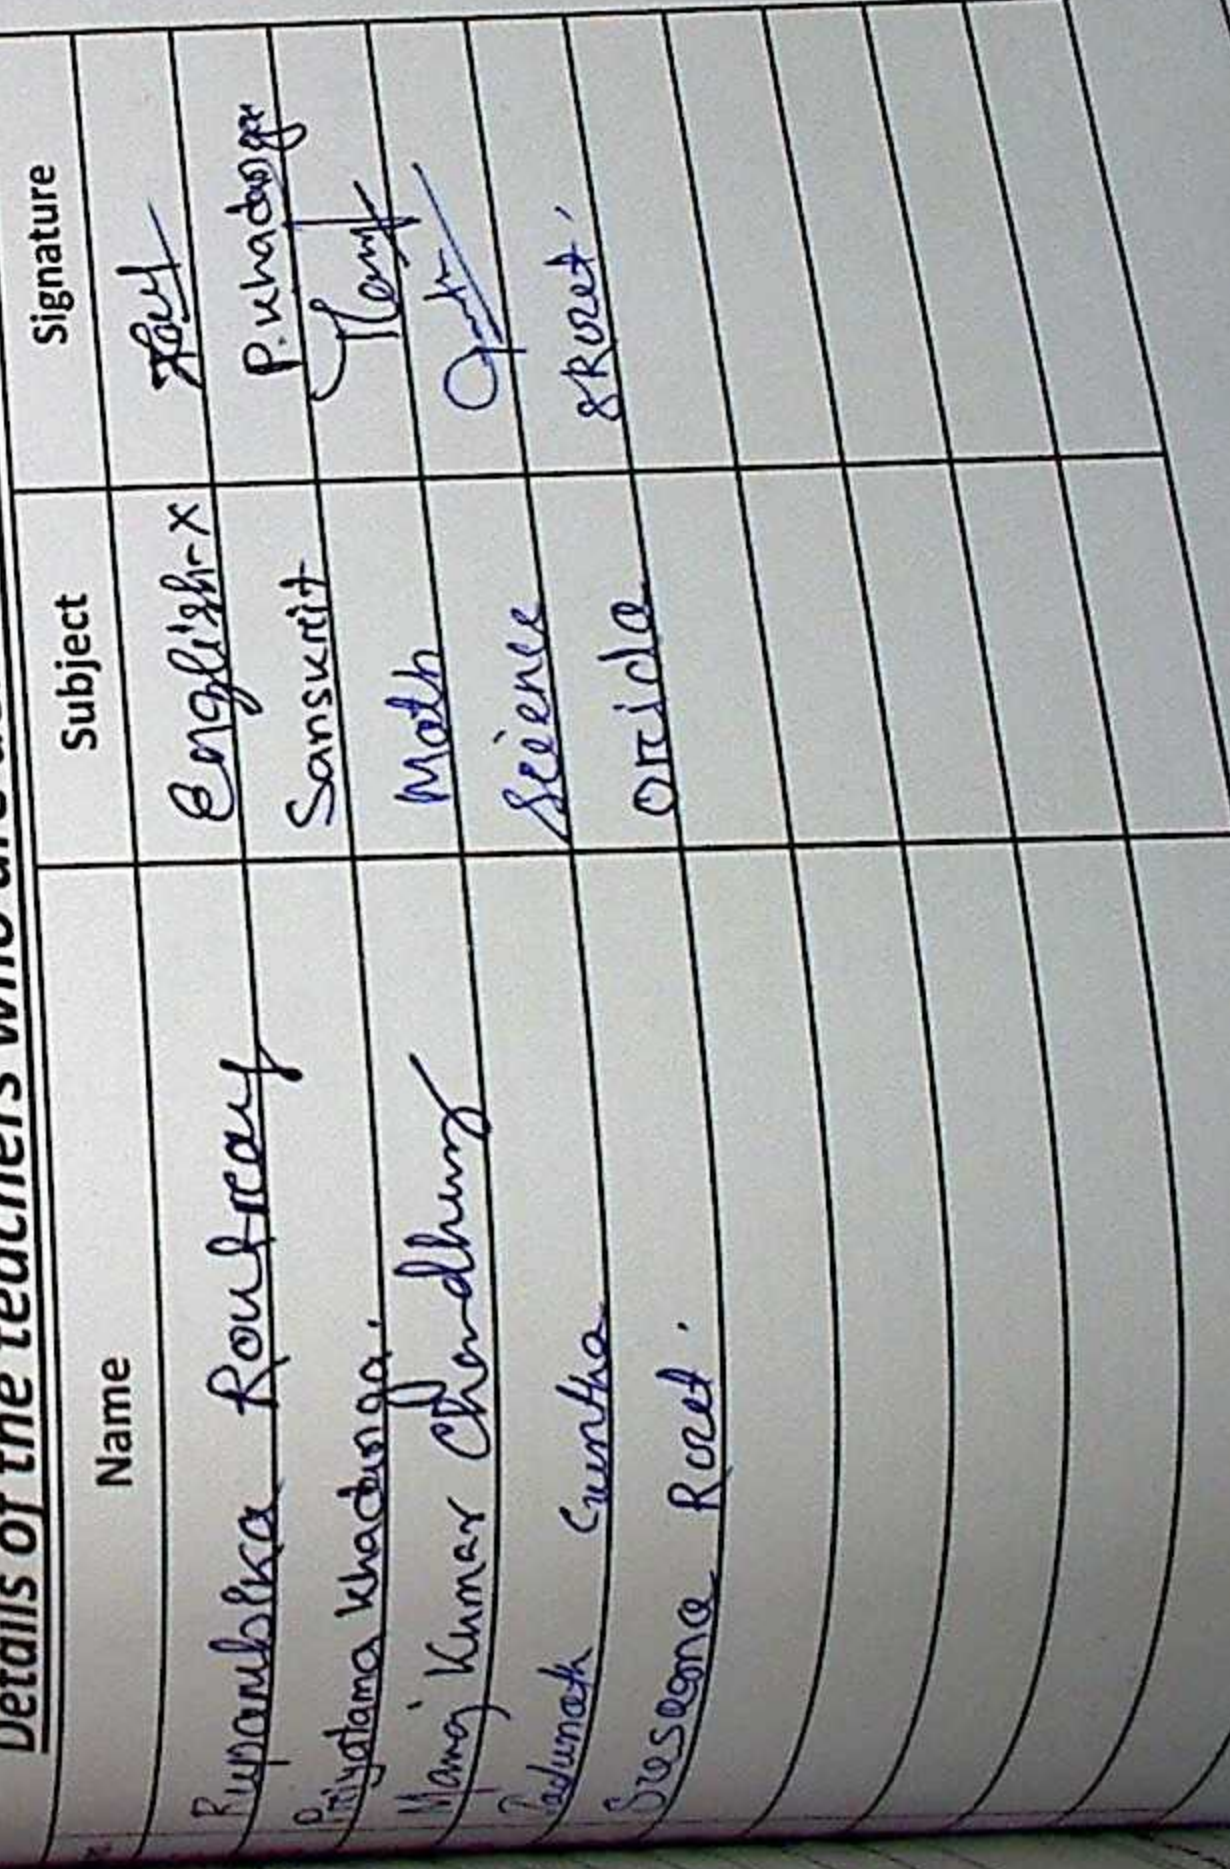 Details of the teachers who are
Name Subject Signature
Priyambika Routray English-X
Priyatama Khadanga. Sanskrit P. Khadanga
Manoj Kumar Chaudhury Math
Jadunath Guntha Science
Rout. Orida SRout.